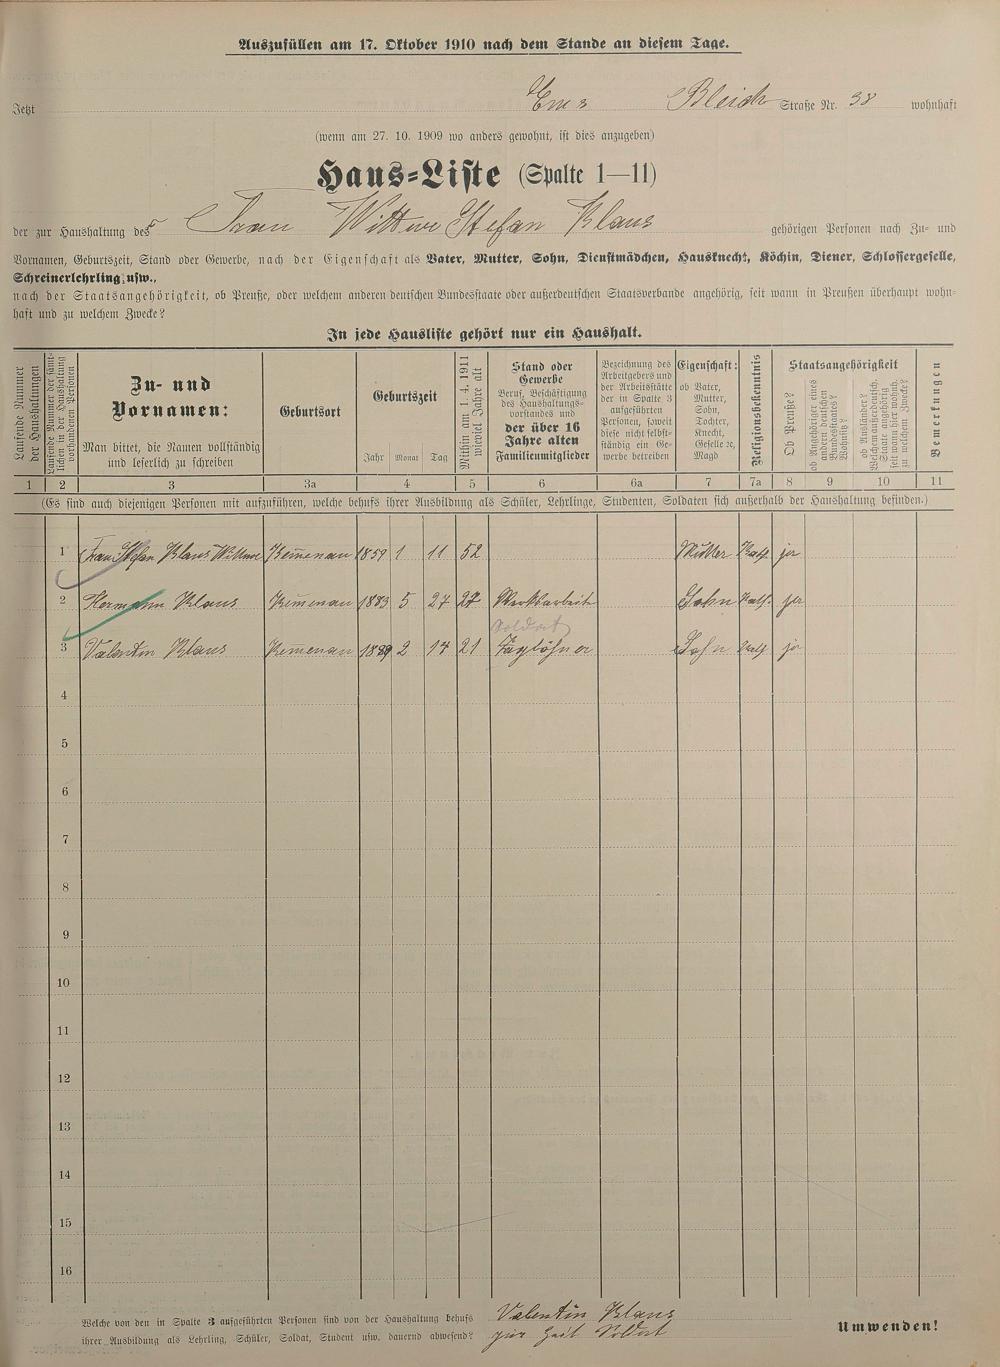 Auszufüllen am 17. Oktober 1910 nach dem Stande an diesem Tage.
Jetzt Ems Bleich Straße Nr. 38 wohnhaft
(wenn am 27. 10. 1909 wo anders gewohnt, ist dies anzugeben)
Haus-Liste (Spalte 1—11)
der zur Haushaltung des Frau Wittwe Stefan Klaus gehörigen Personen nach Zu- und
Vornamen, Geburtszeit, Stand oder Gewerbe, nach der Eigenschaft als Vater, Mutter, Sohn, Dienstmädchen, Hausknecht, Köchin, Diener, Schlossergeselle,
Schreinerlehrling usw.,
nach der Staatsangehörigkeit, ob Preuße, oder welchem anderen deutschen Bundesstaate oder außerdeutschen Staatsverbande angehörig, seit wann in Preußen überhaupt wohn-
haft und zu welchem Zwecke?
In jede Hausliste gehört nur ein Haushalt.
Laufende Nummer
der Haushaltungen
Laufende Nummer der sämt-
lichen in der Haushaltung
vorhandenen Personen
Zu- und
Vornamen:
Man bittet, die Namen vollständig
und leserlich zu schreiben
Geburtsort
Geburtszeit
Jahr Monat Tag
Mithin am 1. 4. 1911
wieviel Jahre alt
Stand oder
Gewerbe
Beruf, Beschäftigung
des Haushaltungs-
vorstandes und
der über 16
Jahre alten
Familienmitglieder
Bezeichnung des
Arbeitgebers und
der Arbeitsstätte
der in Spalte 3
aufgeführten
Personen, soweit
diese nicht selbst-
ständig ein Ge-
werbe betreiben
Eigenschaft:
ob Vater,
Mutter,
Sohn,
Tochter,
Knecht,
Geselle ꝛc,
Magd
Religionsbekenntnis
Staatsangehörigkeit
Ob Preuße?
ob Angehöriger eines
andern deutschen
Bundesstaates?
Wohnsitz?
ob Ausländer?
Welchem außerdeutsch.
Staate angehörig
seit wann hier wohnh.
zu welchem Zwecke?
Bemerkungen
1 2 3 3a 4 5 6 6a 7 7a 8 9 10 11
(Es sind auch diejenigen Personen mit aufzuführen, welche behufs ihrer Ausbildung als Schüler, Lehrlinge, Studenten, Soldaten sich außerhalb der Haushaltung befinden.)
1 Frau Stefan Klaus Wittwe Kemenau 1859 1 11 52 Mutter Kath. ja
2 Hermann Klaus Kemenau 1883 5 27 27 Sohn Kath. ja
Soldat
3 Valentin Klaus Kemenau 1889 2 14 21 Taglöhner Sohn Kath ja
4
5
6
7
8
9
10
11
12
13
14
15
16
Welche von den in Spalte 3 aufgeführten Personen sind von der Haushaltung behufs
ihrer Ausbildung als Lehrling, Schüler, Soldat, Student usw. dauernd abwesend?
Valentin Klaus
zur Zeit Soldat
Umwenden!